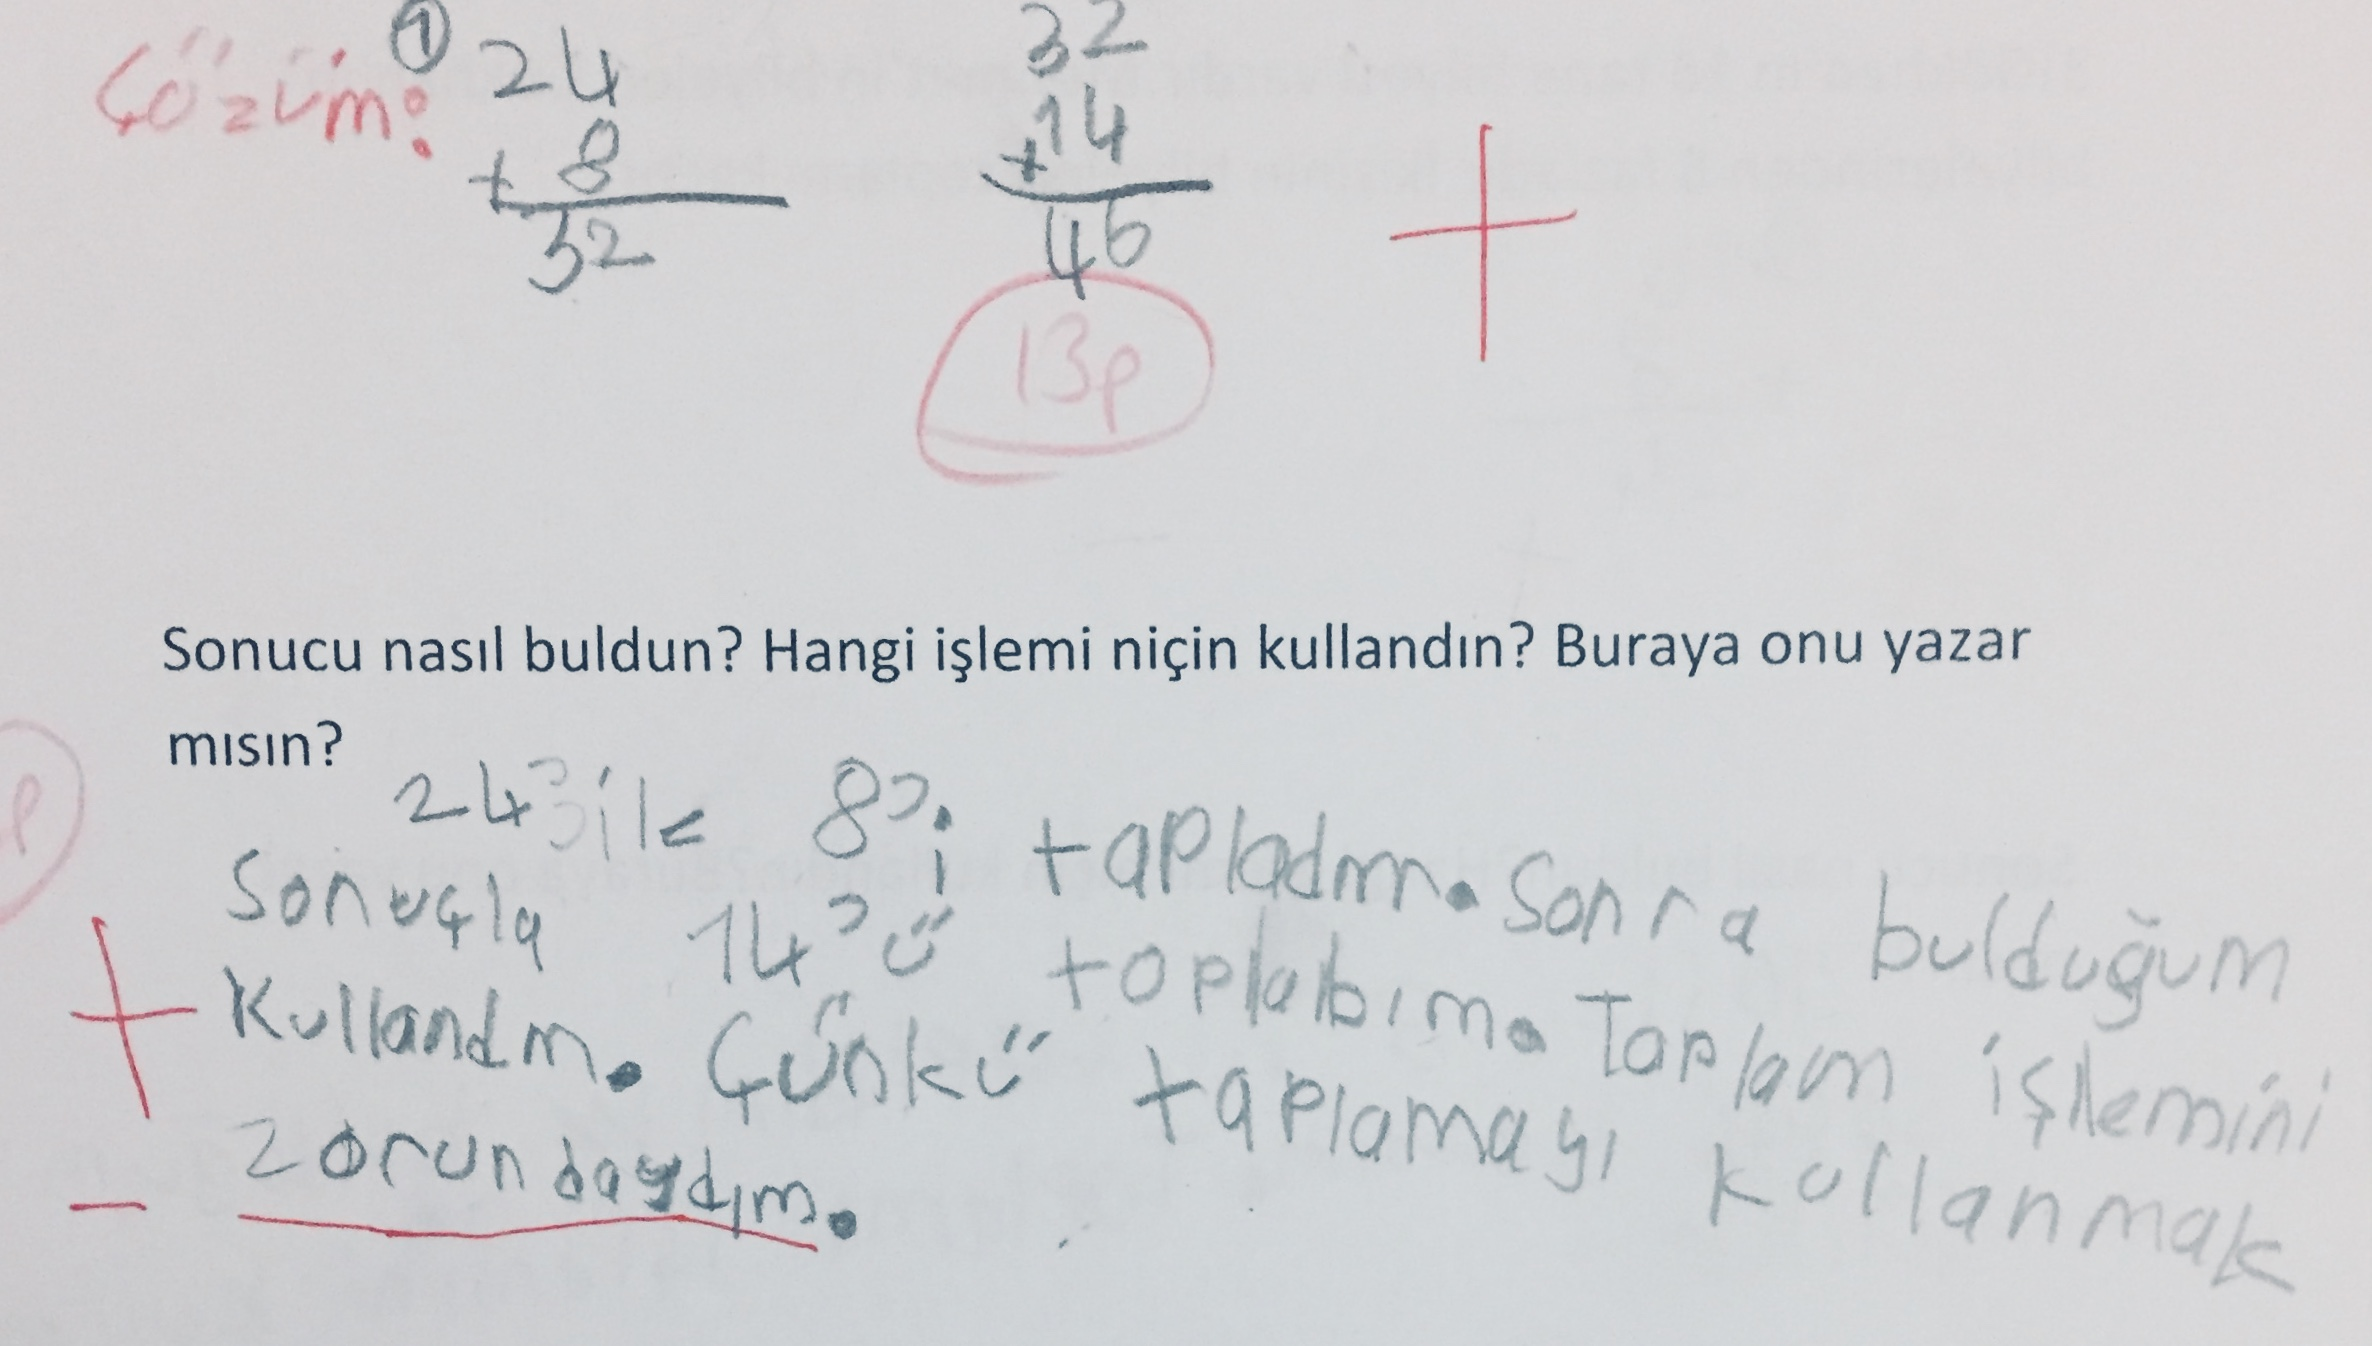 Çözüm:
① 24
+ 8
32
32
+ 14
46
13p
+
Sonucu nasıl buldun? Hangi işlemi niçin kullandın? Buraya onu yazar
mısın?
24 ile 8'i tapladm. Sonra bulduğum
Sonuçla 14'ü toplabım. Taplam işlemini
Kullandm. Çünkü taplamayı kullanmak
Zorundaydım.
p
+
-